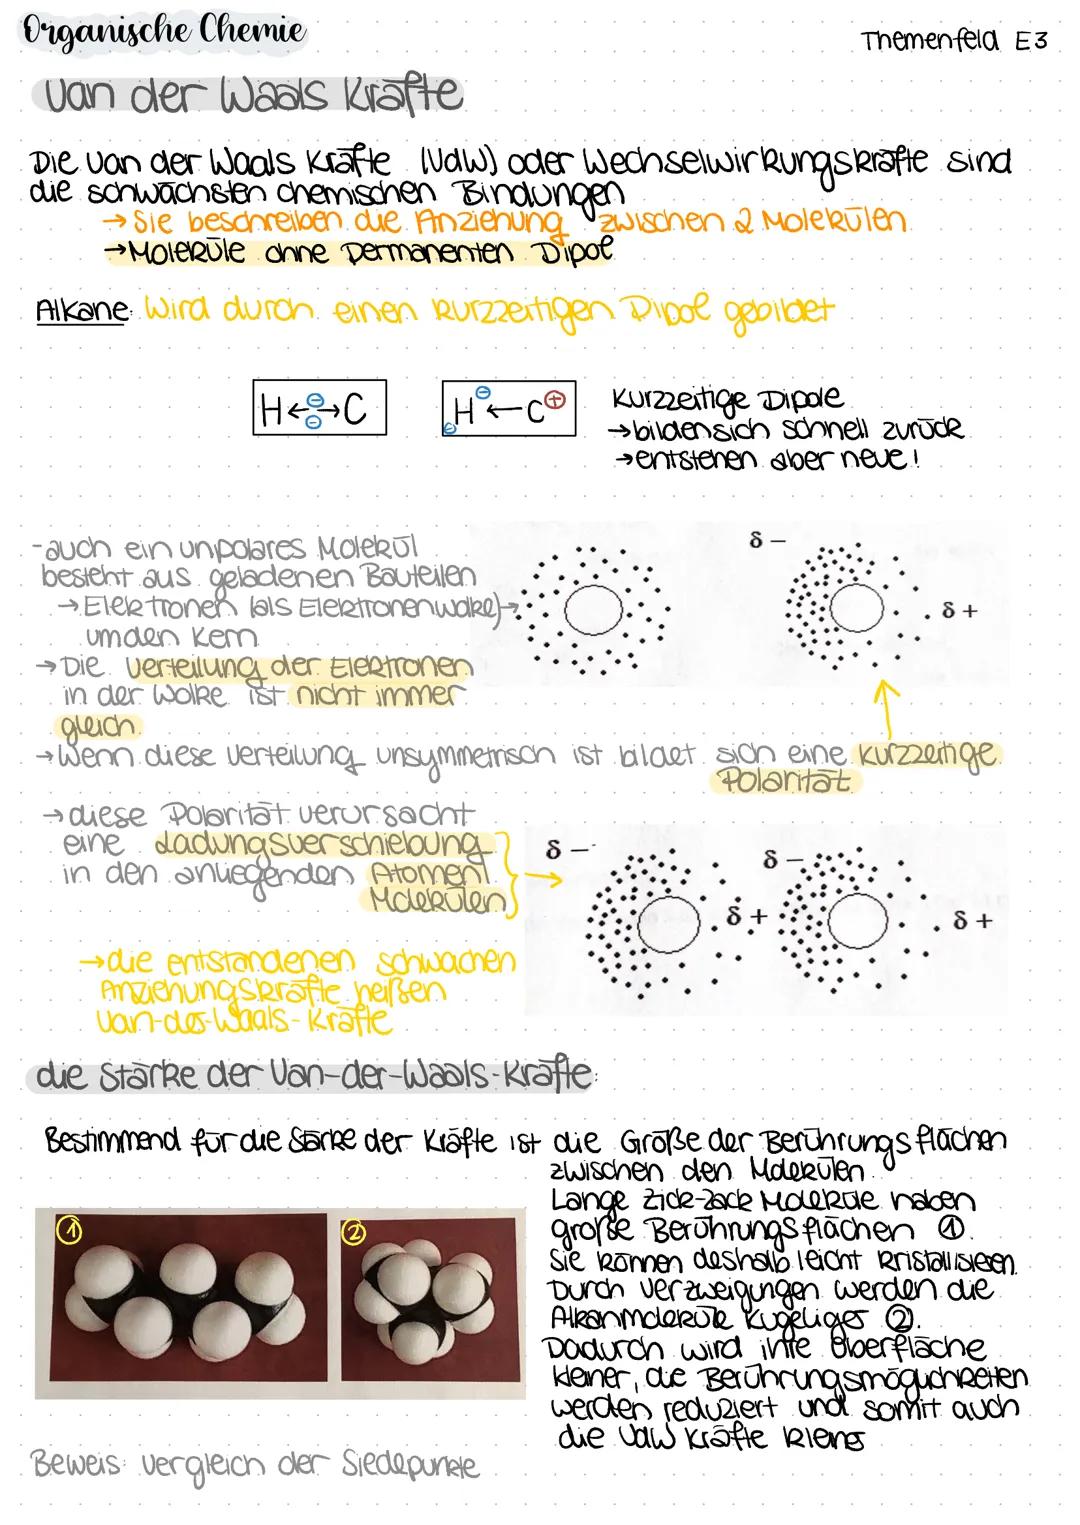 Organische Chemie
Themenfeld E3
Van der Waals Kräfte
Die Van der Waals Kräfte (VdW) oder Wechselwirkungskräfte sind
die schwächsten chemischen Bindungen
→ Sie beschreiben die Anziehung zwischen 2 Molekülen
→ Moleküle ohne Permanenten Dipol
Alkane: Wird durch einen kurzzeitigen Dipol gebildet
H ← ⊖ ⊖ → C
H ⊖ ⊖ ← C ⊕
Kurzzeitige Dipole
→ bilden sich schnell zurück
→ entstehen aber neue!
- auch ein unpolares Molekül
besteht aus geladenen Bauteilen
→ Elektronen (als Elektronenwolke) →
um den Kern
→ Die Verteilung der Elektronen
in der Wolke ist nicht immer
gleich
δ −
δ +
→ Wenn diese Verteilung unsymmetrisch ist bildet sich eine kurzzeitige
Polarität
→ diese Polarität verursacht
eine Ladungsverschiebung
in den anliegenden Atomen/
Molekülen
δ −
δ +
δ −
δ +
→ die entstandenen schwachen
Anziehungskräfte heißen
Van-der-Waals-Kräfte
die Stärke der Van-der-Waals-Kräfte:
Bestimmend für die Stärke der Kräfte ist die Größe der Berührungsflächen
zwischen den Molekülen.
Lange Zick-Zack Moleküle haben
große Berührungsflächen ①.
Sie können deshalb leicht kristallisieren.
Durch Verzweigungen werden die
Alkanmoleküle kugeliger ②.
Dadurch wird ihre Oberfläche
kleiner, die Berührungsmöglichkeiten
werden reduziert und somit auch
die VdW Kräfte kleiner
①
②
Beweis: Vergleich der Siedepunkte